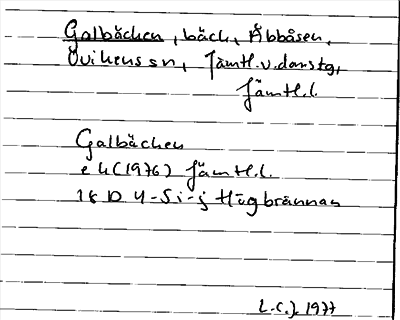 Galbäcken, bäck, Åbbåsen,
Ovikens sn, Jämtl. v. domstg,
Jämtl. l.
Galbäcken
e k (1976) Jämtl. l.
18 D 4-5 i-j Högbrännan
L.C.J. 1977